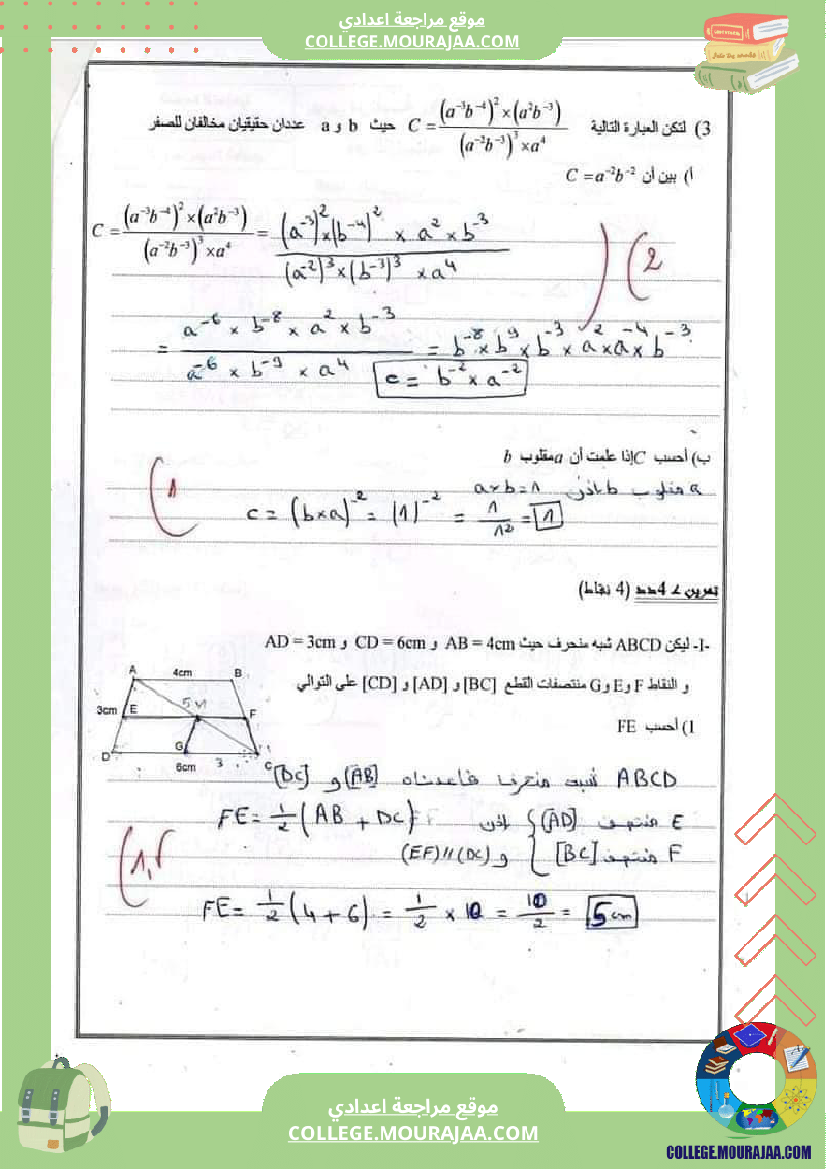 موقع مراجعة اعدادي
COLLEGE.MOURAJAA.COM
3) لتكن العبارة التالية C = (a⁻³b⁻⁴)² × (a²b⁻³) / (a⁻²b⁻³)³ × a⁴ حيث a و b عددان حقيقيان مخالفان للصفر
أ) بين أن C = a⁻²b⁻²
C = (a⁻³b⁻⁴)² × (a²b⁻³) / (a⁻²b⁻³)³ × a⁴ = (a⁻³)² × (b⁻⁴)² × a² × b⁻³ / (a⁻²)³ × (b⁻³)³ × a⁴
2
= a⁻⁶ × b⁻⁸ × a² × b⁻³ / a⁻⁶ × b⁻⁹ × a⁴ = b⁻⁸ × b⁹ × b⁻³ × a² × a⁻⁴ × b⁻³
c = b⁻² × a⁻²
ب) أحسب C إذا علمت أن a مقلوب b
a مقلوب b إذن a × b = 1
c = (b×a)⁻² = (1)⁻² = 1/1² = 1
1
تمرين عدد 4 (4 نقاط)
-I- ليكن ABCD شبه منحرف حيث AB = 4cm و CD = 6cm و AD = 3cm
و النقاط F و E و G منتصفات القطع [BC] و [AD] و [CD] على التوالي
1) أحسب FE
A 4cm B
3cm E F
D G C
6cm 3
ABCD شبه منحرف قاعدتاه [AB] و [DC]
E منتصف [AD] إذن FE = 1/2 (AB + DC)
F منتصف [BC] و (EF)//(DC)
1,5
FE = 1/2 (4 + 6) = 1/2 × 10 = 10/2 = 5cm
موقع مراجعة اعدادي
COLLEGE.MOURAJAA.COM
COLLEGE.MOURAJAA.COM